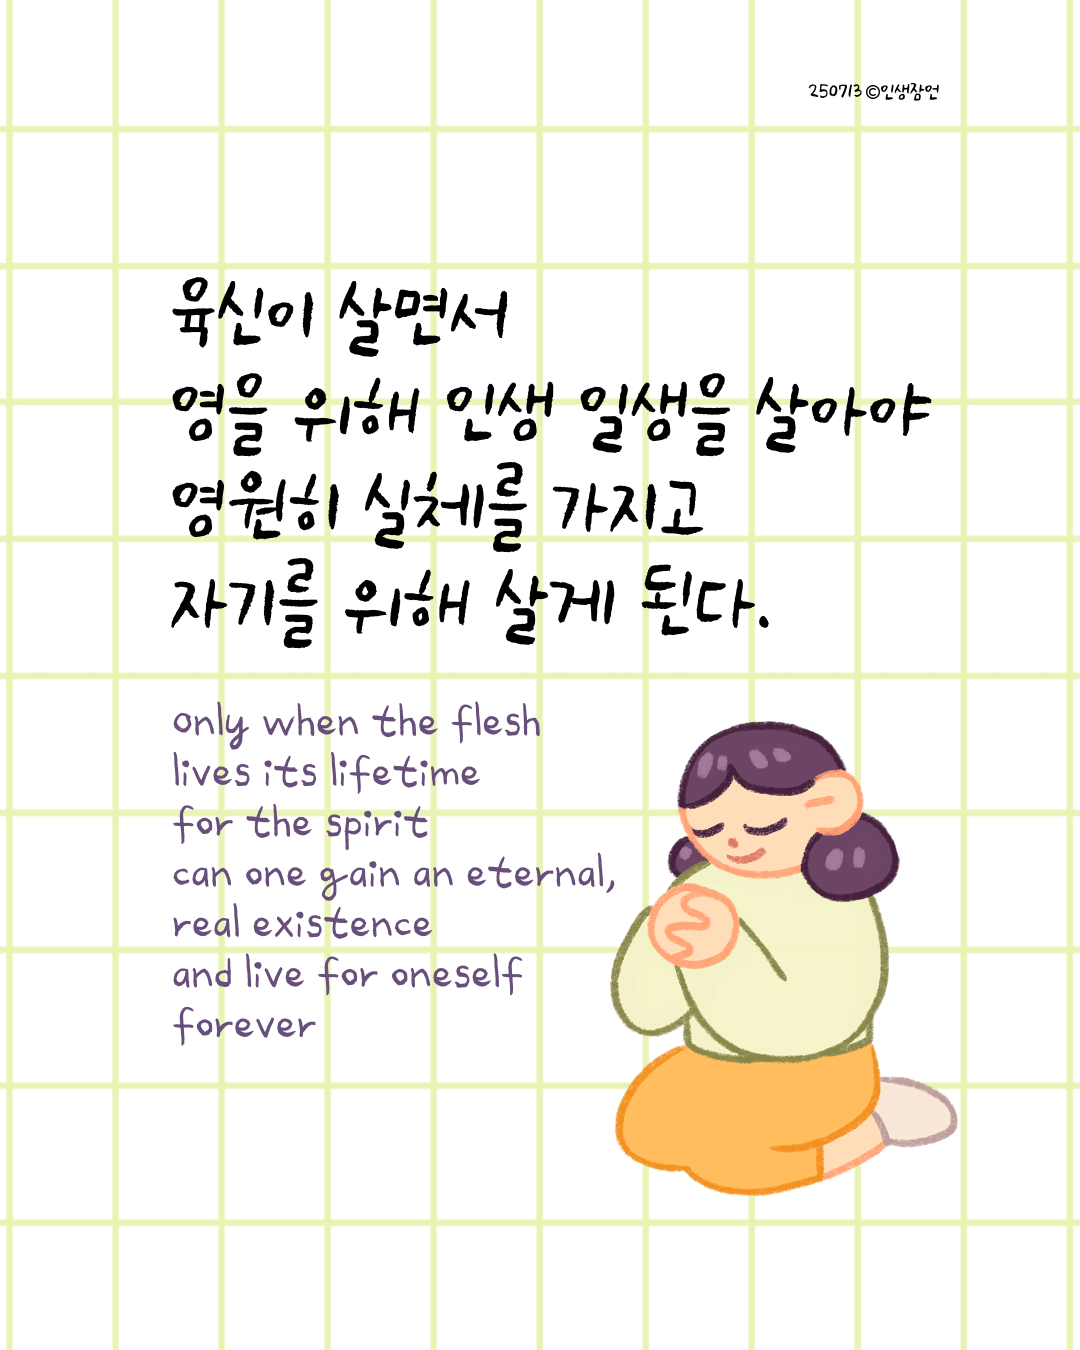 250713 ©인생잠언
육신이 살면서
영을 위해 인생 일생을 살아야
영원히 실체를 가지고
자기를 위해 살게 된다.
only when the flesh
lives its lifetime
for the spirit
can one gain an eternal,
real existence
and live for oneself
forever